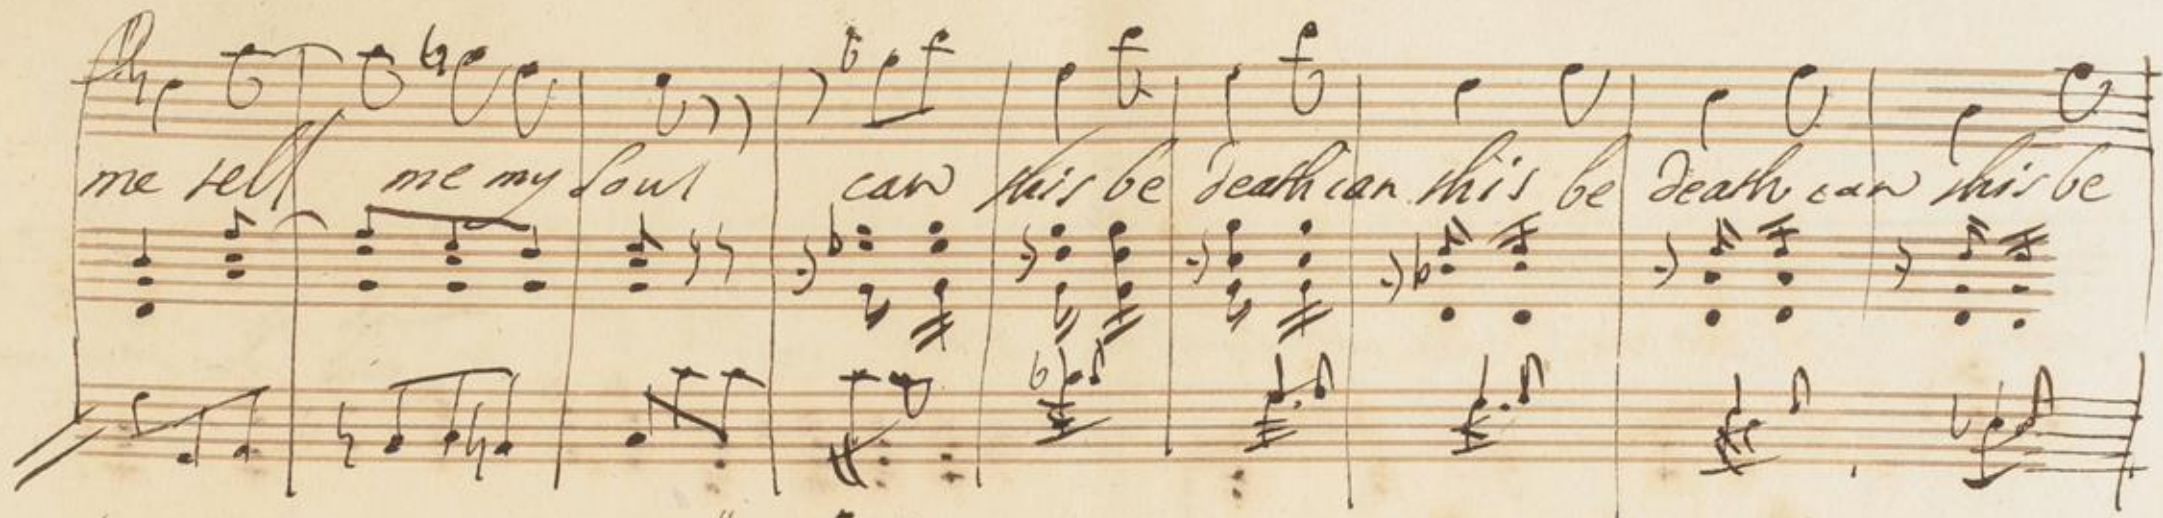 me tell me my Soul can this be death can this be death can this be